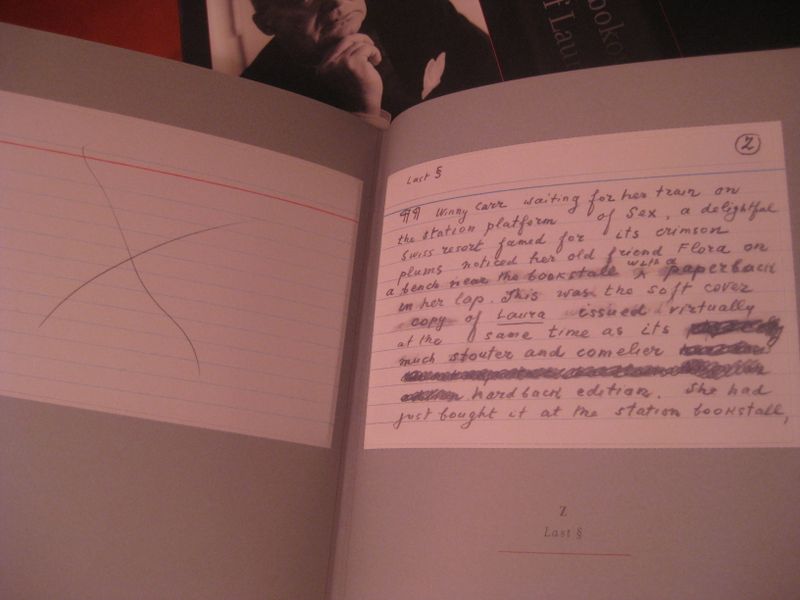 boko
f Lau
Z
Last §
¶¶ Winny Carr waiting for her train on
the station platform of Sex, a delightful
Swiss resort famed for its crimson
plums noticed her old friend Flora on
a bench near the bookstall with a paperback
in her lap. This was the soft cover
copy of Laura issued virtually
at the same time as its
much stouter and comelier
hardback edition. She had
just bought it at the station bookstall,
Z
Last §